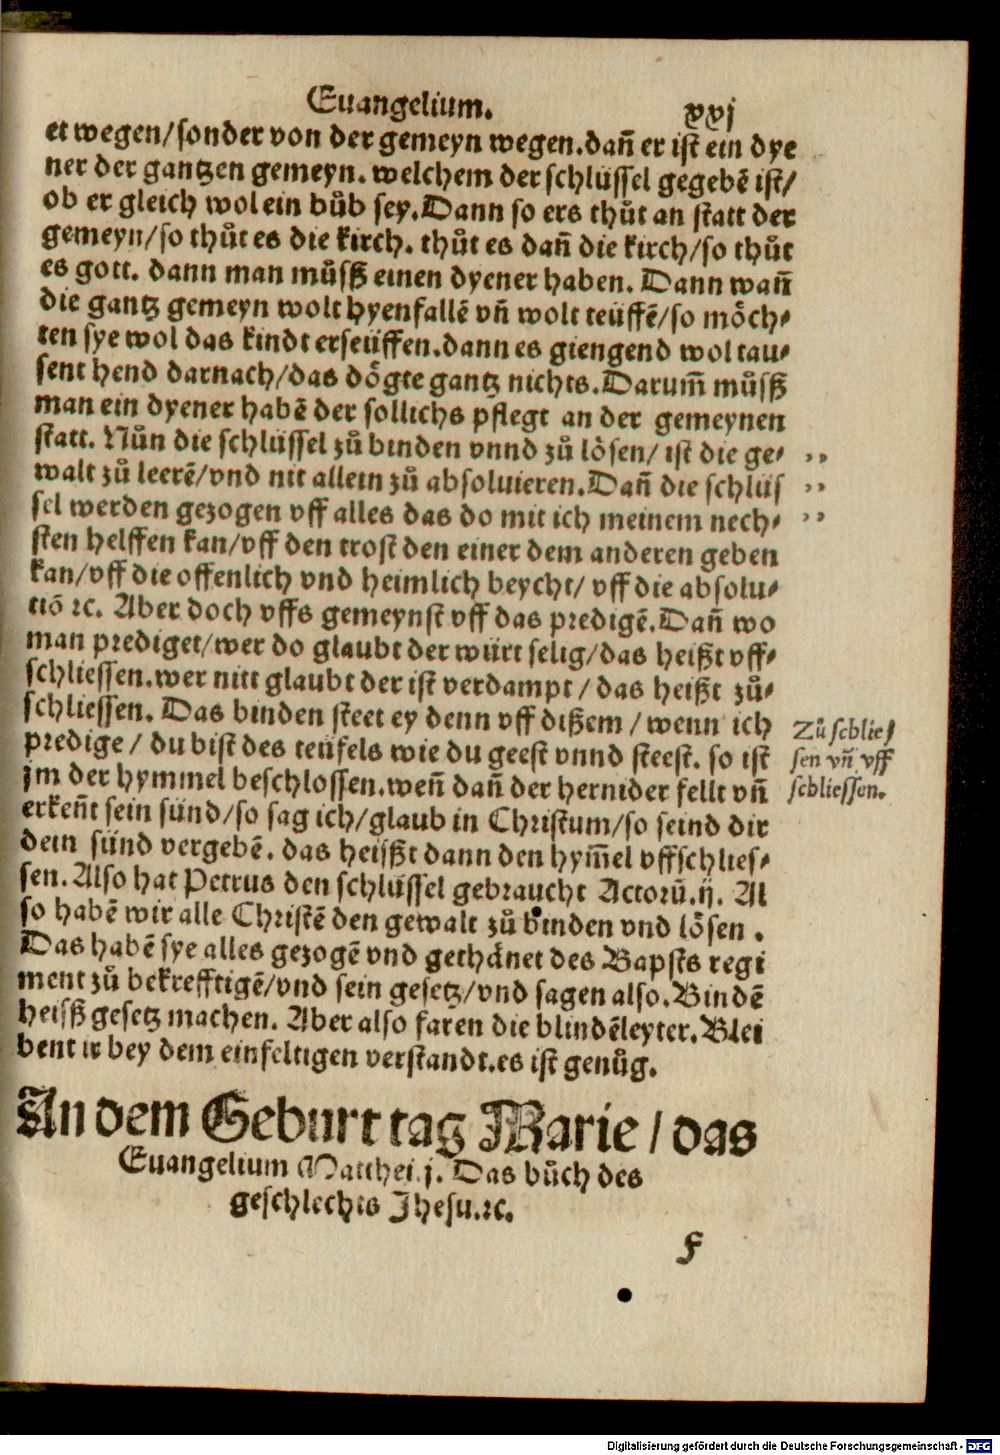 Euangelium. xxj
et wegen/sonder von der gemeyn wegen.dañ er ist ein dye
ner der gantzen gemeyn. welchem der schlüssel gegebē ist/
ob er gleich wol ein bůb sey.Dann so ers thůt an statt der
gemeyn/so thůt es die kirch. thůt es dañ die kirch/so thůt
es gott. dann man můsß einen dyener haben. Dann wañ
die gantz gemeyn wolt hyenfallē vñ wolt teüffē/so möch⸗
ten sye wol das kindt erseüffen.dann es giengend wol tau⸗
sent hend darnach/das dögte gantz nichts.Darum̃ můsß
man ein dyener habē der sollichs pflegt an der gemeynen
statt. Nůn die schlüssel zů binden vnnd zů lösen/ ist die ge⸗ ,,
walt zů leerē/vnd nit allein zů absoluieren.Dañ die schlüs ,,
sel werden gezogen vff alles das do mit ich meinem nech⸗ ,,
sten helffen kan/vff den trost den einer dem anderen geben
kan/vff die offenlich vnd heimlich beycht/ vff die absolu⸗
tiō ꝛc. Aber doch vffs gemeynst vff das predigē.Dañ wo
man prediget/wer do glaubt der würt selig/das heißt vff⸗
schliessen.wer nitt glaubt der ist verdampt/das heißt zů⸗
schliessen. Das binden steet ey denn vff dißem/wenn ich
predige/ du bist des teüfels wie du geest vnnd steest. so ist
jm der hymmel beschlossen.weñ dañ der hernider fellt vñ
erkeñt sein sünd/so sag ich/glaub in Christum/so seind dir
dein sünd vergebē. das heisßt dann den hym̃el vffschlies⸗
sen. Also hat Petrus den schlüssel gebraucht Actorū.ij. Al
so habē wir alle Christē den gewalt zů binden vnd lösen .
Das habē sye alles gezogē vnd gethänet des Bapsts regi
ment zů bekrefftigē/vnd sein gesetz/vnd sagen also.Bindē
heisß gesetz machen. Aber also faren die blindēleyter.Blei
bent ir bey dem einfeltigen verstandt.es ist genůg.
Zů schlies
sen vñ vff
schliessen.
An dem Geburt tag Marie/das
Euangelium Matthei.j. Das bůch des
geschlechts Jhesu.ꝛc.
F
Digitalisierung gefördert durch die Deutsche Forschungsgemeinschaft - DFG